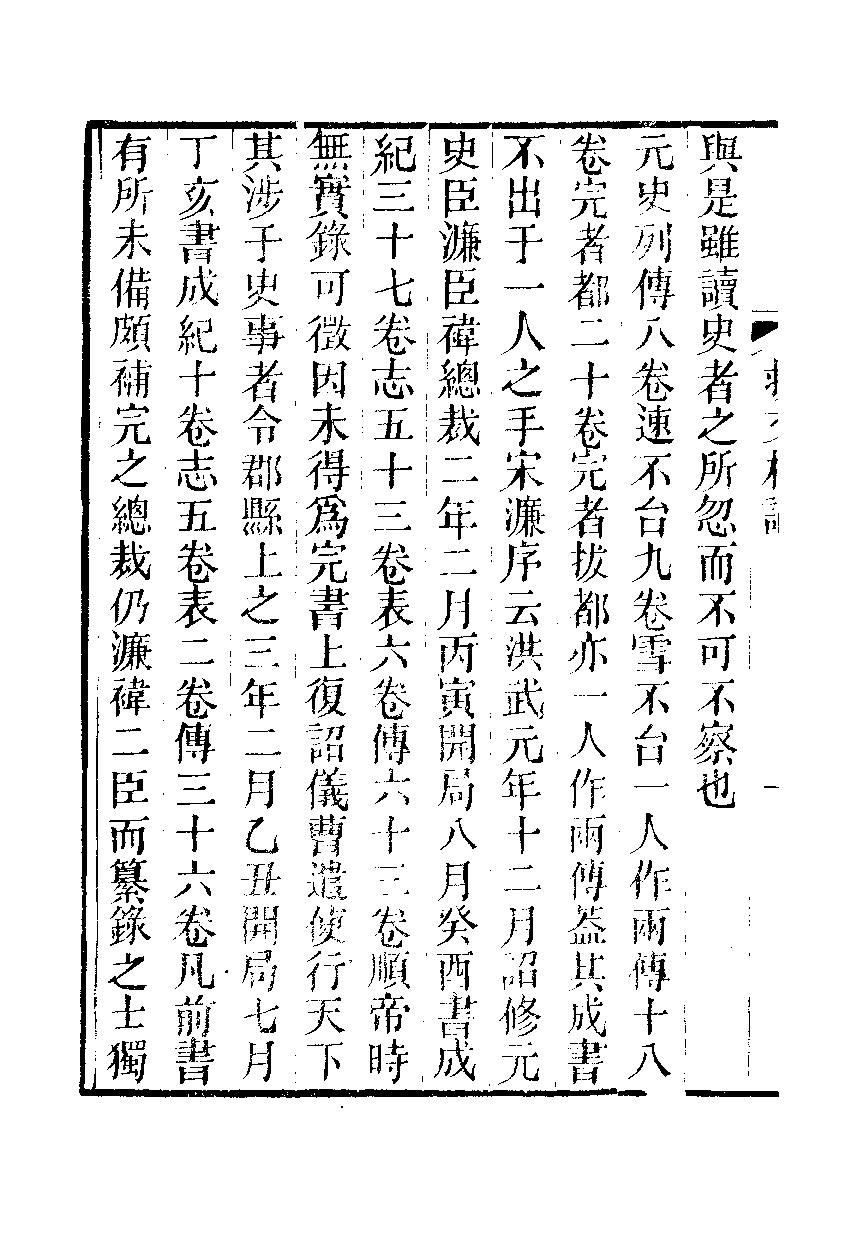 與是雖讀史者之所忽而不可不察也
元史列傳八卷速不台九卷雪不台一人作兩傳十八
卷完者都二十卷完者拔都亦一人作兩傳蓋其成書
不出于一人之手宋濂序云洪武元年十二月詔修元
史臣濂臣禕總裁二年二月丙寅開局八月癸酉書成
紀三十七卷志五十三卷表六卷傳六十三卷順帝時
無實錄可徵因未得爲完書上復詔儀曹遣使行天下
其涉于史事者令郡縣上之三年二月乙丑開局七月
丁亥書成紀十卷志五卷表二卷傳三十六卷凡前書
有所未備頗補完之總裁仍濂禕二臣而纂錄之士獨